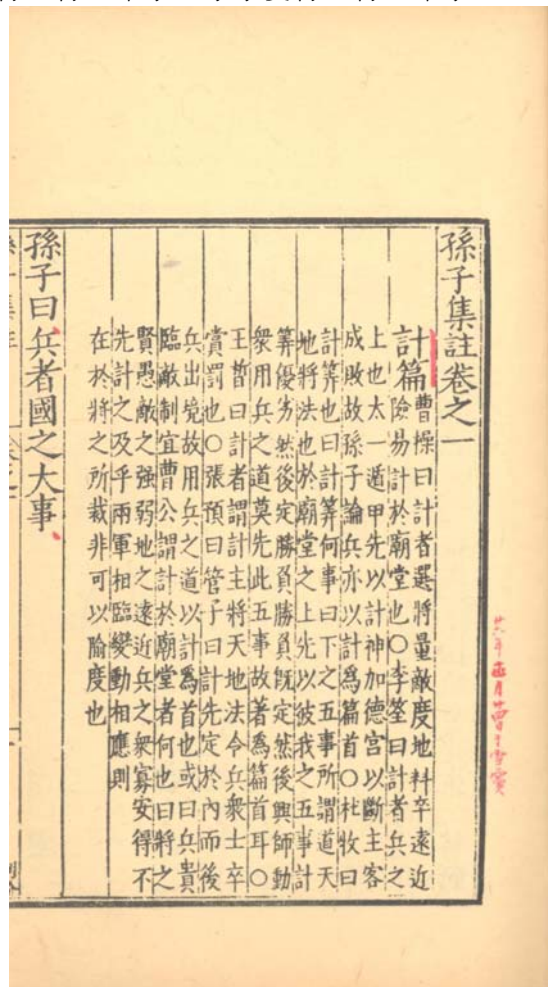 孫子集註卷之一
計篇曹操曰計者選將量敵度地料卒遠近
險易計於廟堂也○李筌曰計者兵之
上也太一遁甲先以計神加德宮以斷主客
成敗故孫子論兵亦以計爲篇首○杜牧曰
計筭也曰計筭何事曰下之五事所謂道天
地將法也於廟堂之上先以彼我之五事計
筭優劣然後定勝負勝負旣定然後興師動
衆用兵之道莫先此五事故著爲篇首耳○
王晳曰計者謂計主將天地法令兵衆士卒
賞罰也○張預曰管子曰計先定於內而後
兵出境故用兵之道以計爲首也或曰兵貴
臨敵制宜曹公謂計於廟堂者何也曰將之
賢愚敵之强弱地之遠近兵之衆寡安得不
先計之及乎兩軍相臨變動相應則
在於將之所裁非可以隃度也
孫子曰兵者國之大事